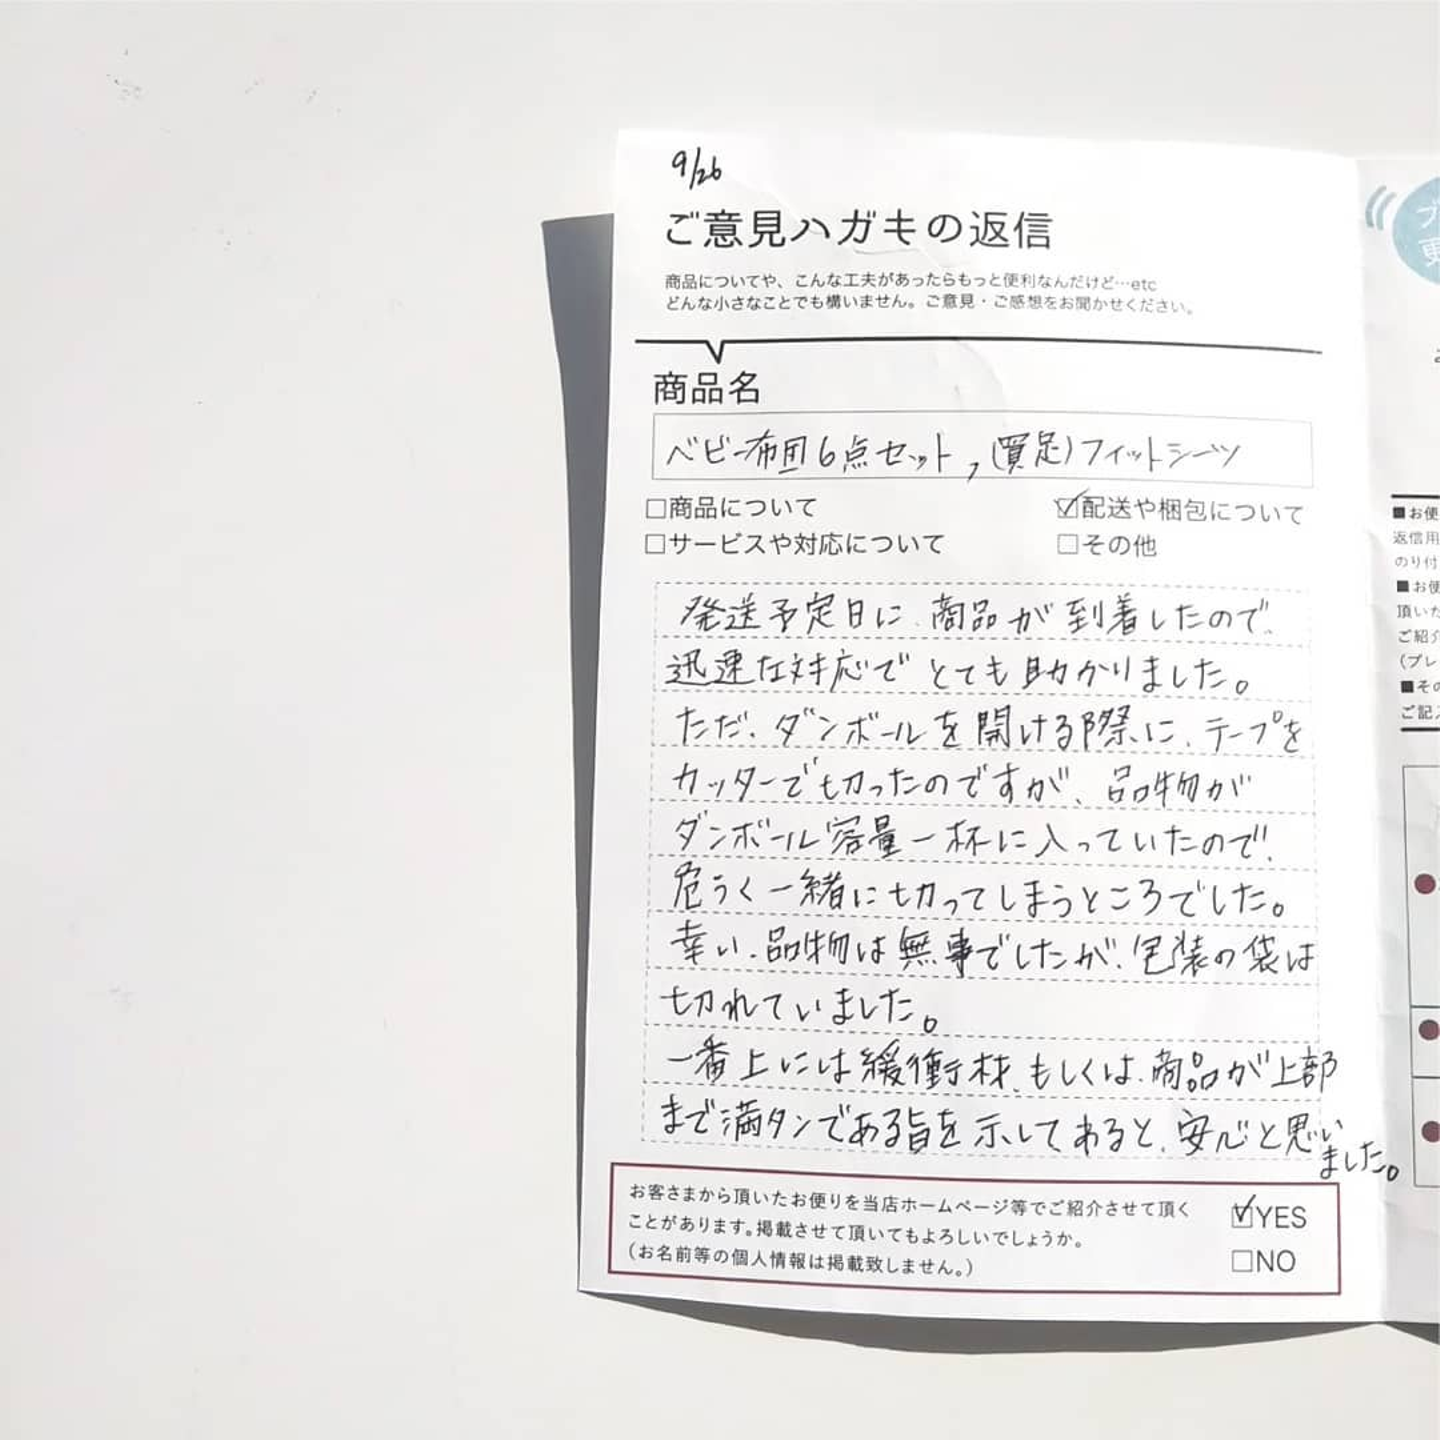 9/26
ご意見ハガキの返信
商品についてや、こんな工夫があったらもっと便利なんだけど…etc
どんな小さなことでも構いません。ご意見・ご感想をお聞かせください。
商品名
ベビー布団6点セット,(買足)フィットシーツ
□商品について
☑配送や梱包について
□サービスや対応について
□その他
発送予定日に、商品が到着したので、
迅速な対応でとても助かりました。
ただ、ダンボールを開ける際に、テープを
カッターで切ったのですが、品物が
ダンボール容量一杯に入っていたので、
危うく一緒に切ってしまうところでした。
幸い、品物は無事でしたが、包装の袋は
切れていました。
一番上には緩衝材、もしくは、商品が上部
まで満タンである旨を示してあると、安心と思い
ました。
お客さまから頂いたお便りを当店ホームページ等でご紹介させて頂く
ことがあります。掲載させて頂いてもよろしいでしょうか。
(お名前等の個人情報は掲載致しません。)
☑YES
□NO
■お便
返信用
のり付
■お便
頂いた
ご紹介
(プレ
■その
ご記入